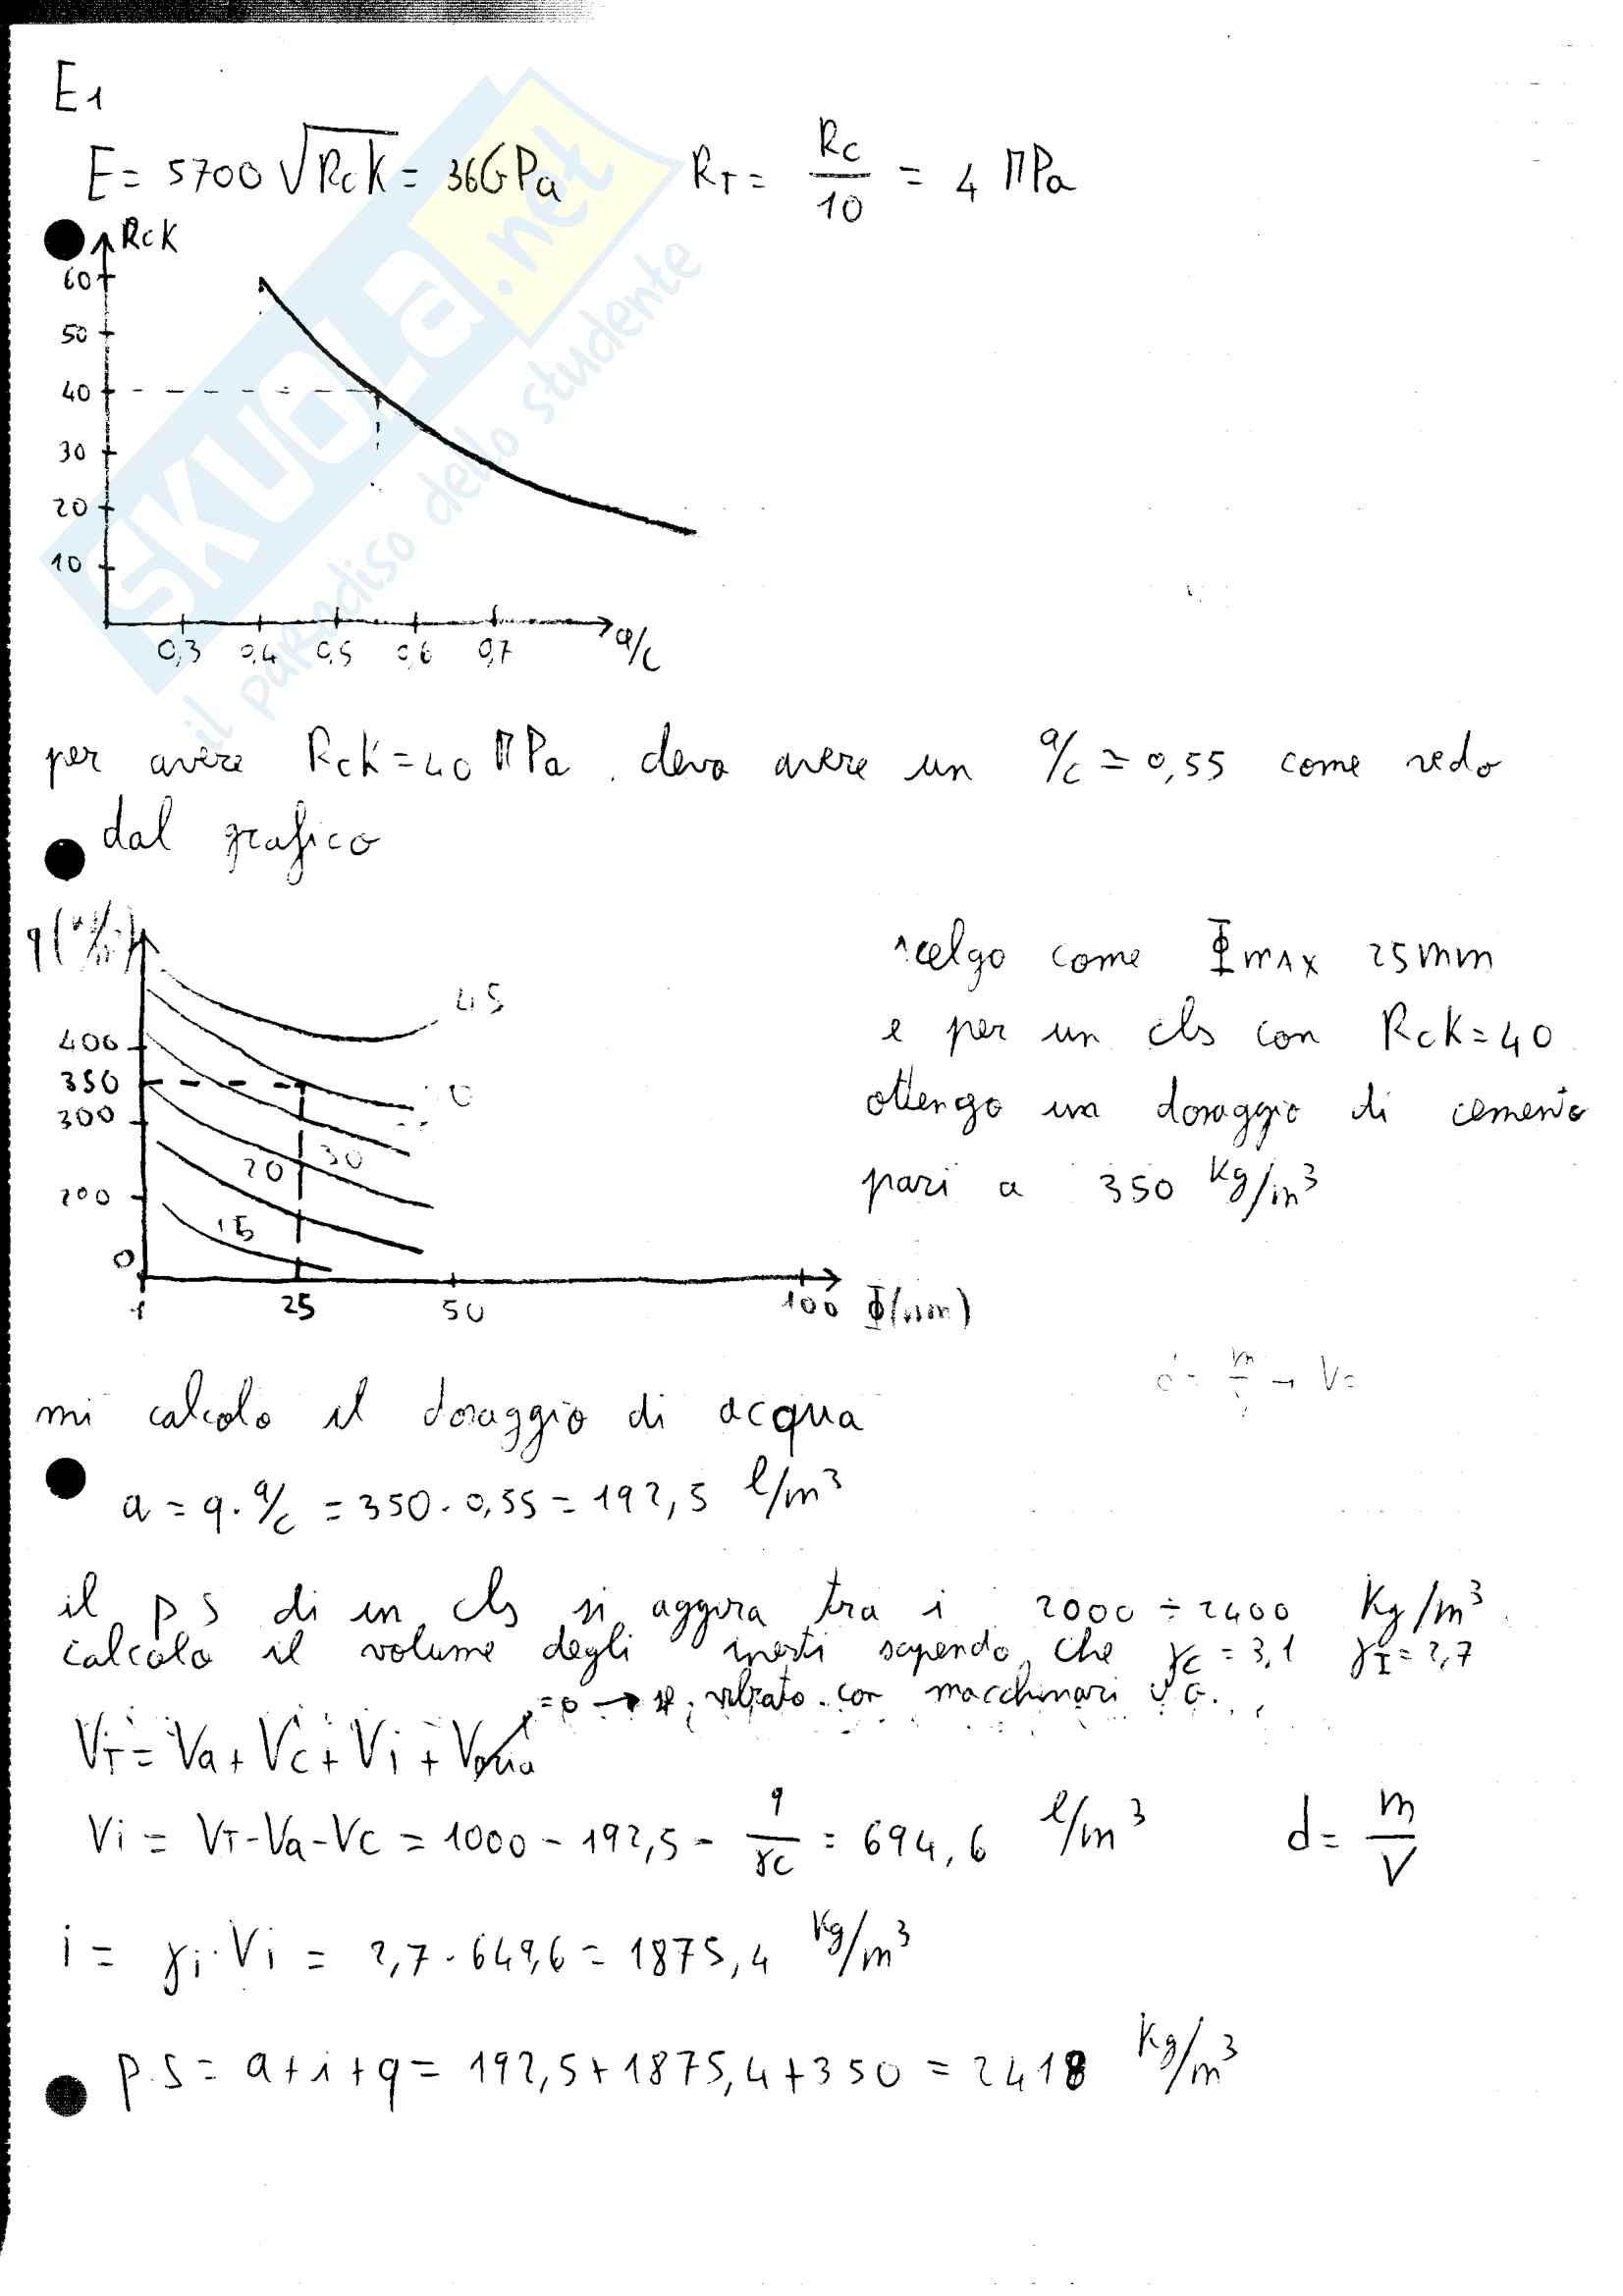 E1
E = 5700 √Rck = 36GPa RT = Rc/10 = 4 MPa
Rck
60
50
40
30
20
10
0,3 0,4 0,5 0,6 0,7 a/c
SKUOLA.net
il paradiso dello studente
per avere Rck = 40 MPa devo avere un a/c ≃ 0,55 come vedo
dal grafico
scelgo come Φmax 25mm
e per un cls con Rck = 40
ottengo un dosaggio di cemento
pari a 350 Kg/m³
400
350
300
200
0
45
30
20
15
1 25 50 100 Φ(mm)
d = m/V → V=
mi calcolo il dosaggio di acqua
a = q · a/c = 350 · 0,55 = 192,5 l/m³
il p s di un cls si aggira tra i 2000 ÷ 2400 Kg/m³
calcolo il volume degli inerti sapendo che γc = 3,1 γI = 2,7
=0 → vibrato con macchinari
VT = Va + Vc + Vi + Varia
Vi = VT - Va - Vc = 1000 - 192,5 - q/γc = 694,6 l/m³ d = m/V
i = γi · Vi = 2,7 · 649,6 = 1875,4 Kg/m³
p.s = a + i + q = 192,5 + 1875,4 + 350 = 2418 Kg/m³